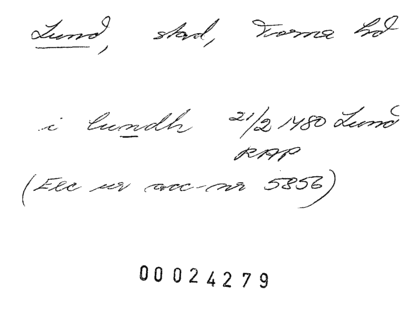 Lund, stad, Torna hd
i lundh 21/2 1480 Lund
RAP
(Exc ur acc-nr 5856)
00024279